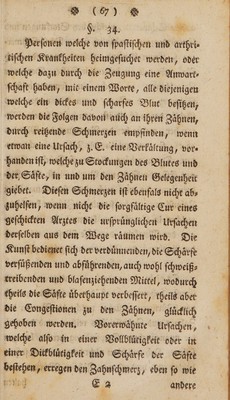 ( 67 )
§. 34.
Personen welche von spastischen und arthri-
tischen Krankheiten heimgesuchet werden, oder
welche dazu durch die Zeugung eine Anwart-
schaft haben, mit einem Worte, alle diejenigen
welche ein dickes und scharfes Blut besitzen,
werden die Folgen davon auch an ihren Zähnen,
durch reitzende Schmerzen empfinden, wenn
etwan eine Ursach, z. E. eine Verkältung, vor-
handen ist, welche zu Stockungen des Blutes und
der Säfte, in und um den Zähnen Gelegenheit
giebet. Diesen Schmerzen ist ebenfals nicht ab-
zuhelfen, wenn nicht die sorgfältige Cur eines
geschickten Arztes die ursprünglichen Ursachen
derselben aus dem Wege räumen wird. Die
Kunst bedienet sich der verdünnenden, die Schärfe
versüßenden und abführenden, auch wohl schweiß-
treibenden und blasenziehenden Mittel, wodurch
theils die Säfte überhaupt verbessert, theils aber
die Congestionen zu den Zähnen, glücklich
gehoben werden. Vorerwähnte Ursachen,
welche also in einer Vollblütigkeit oder in
einer Dickblütigkeit und Schärfe der Säfte
bestehen, erregen den Zahnschmerz, eben so wie
E 2 andere